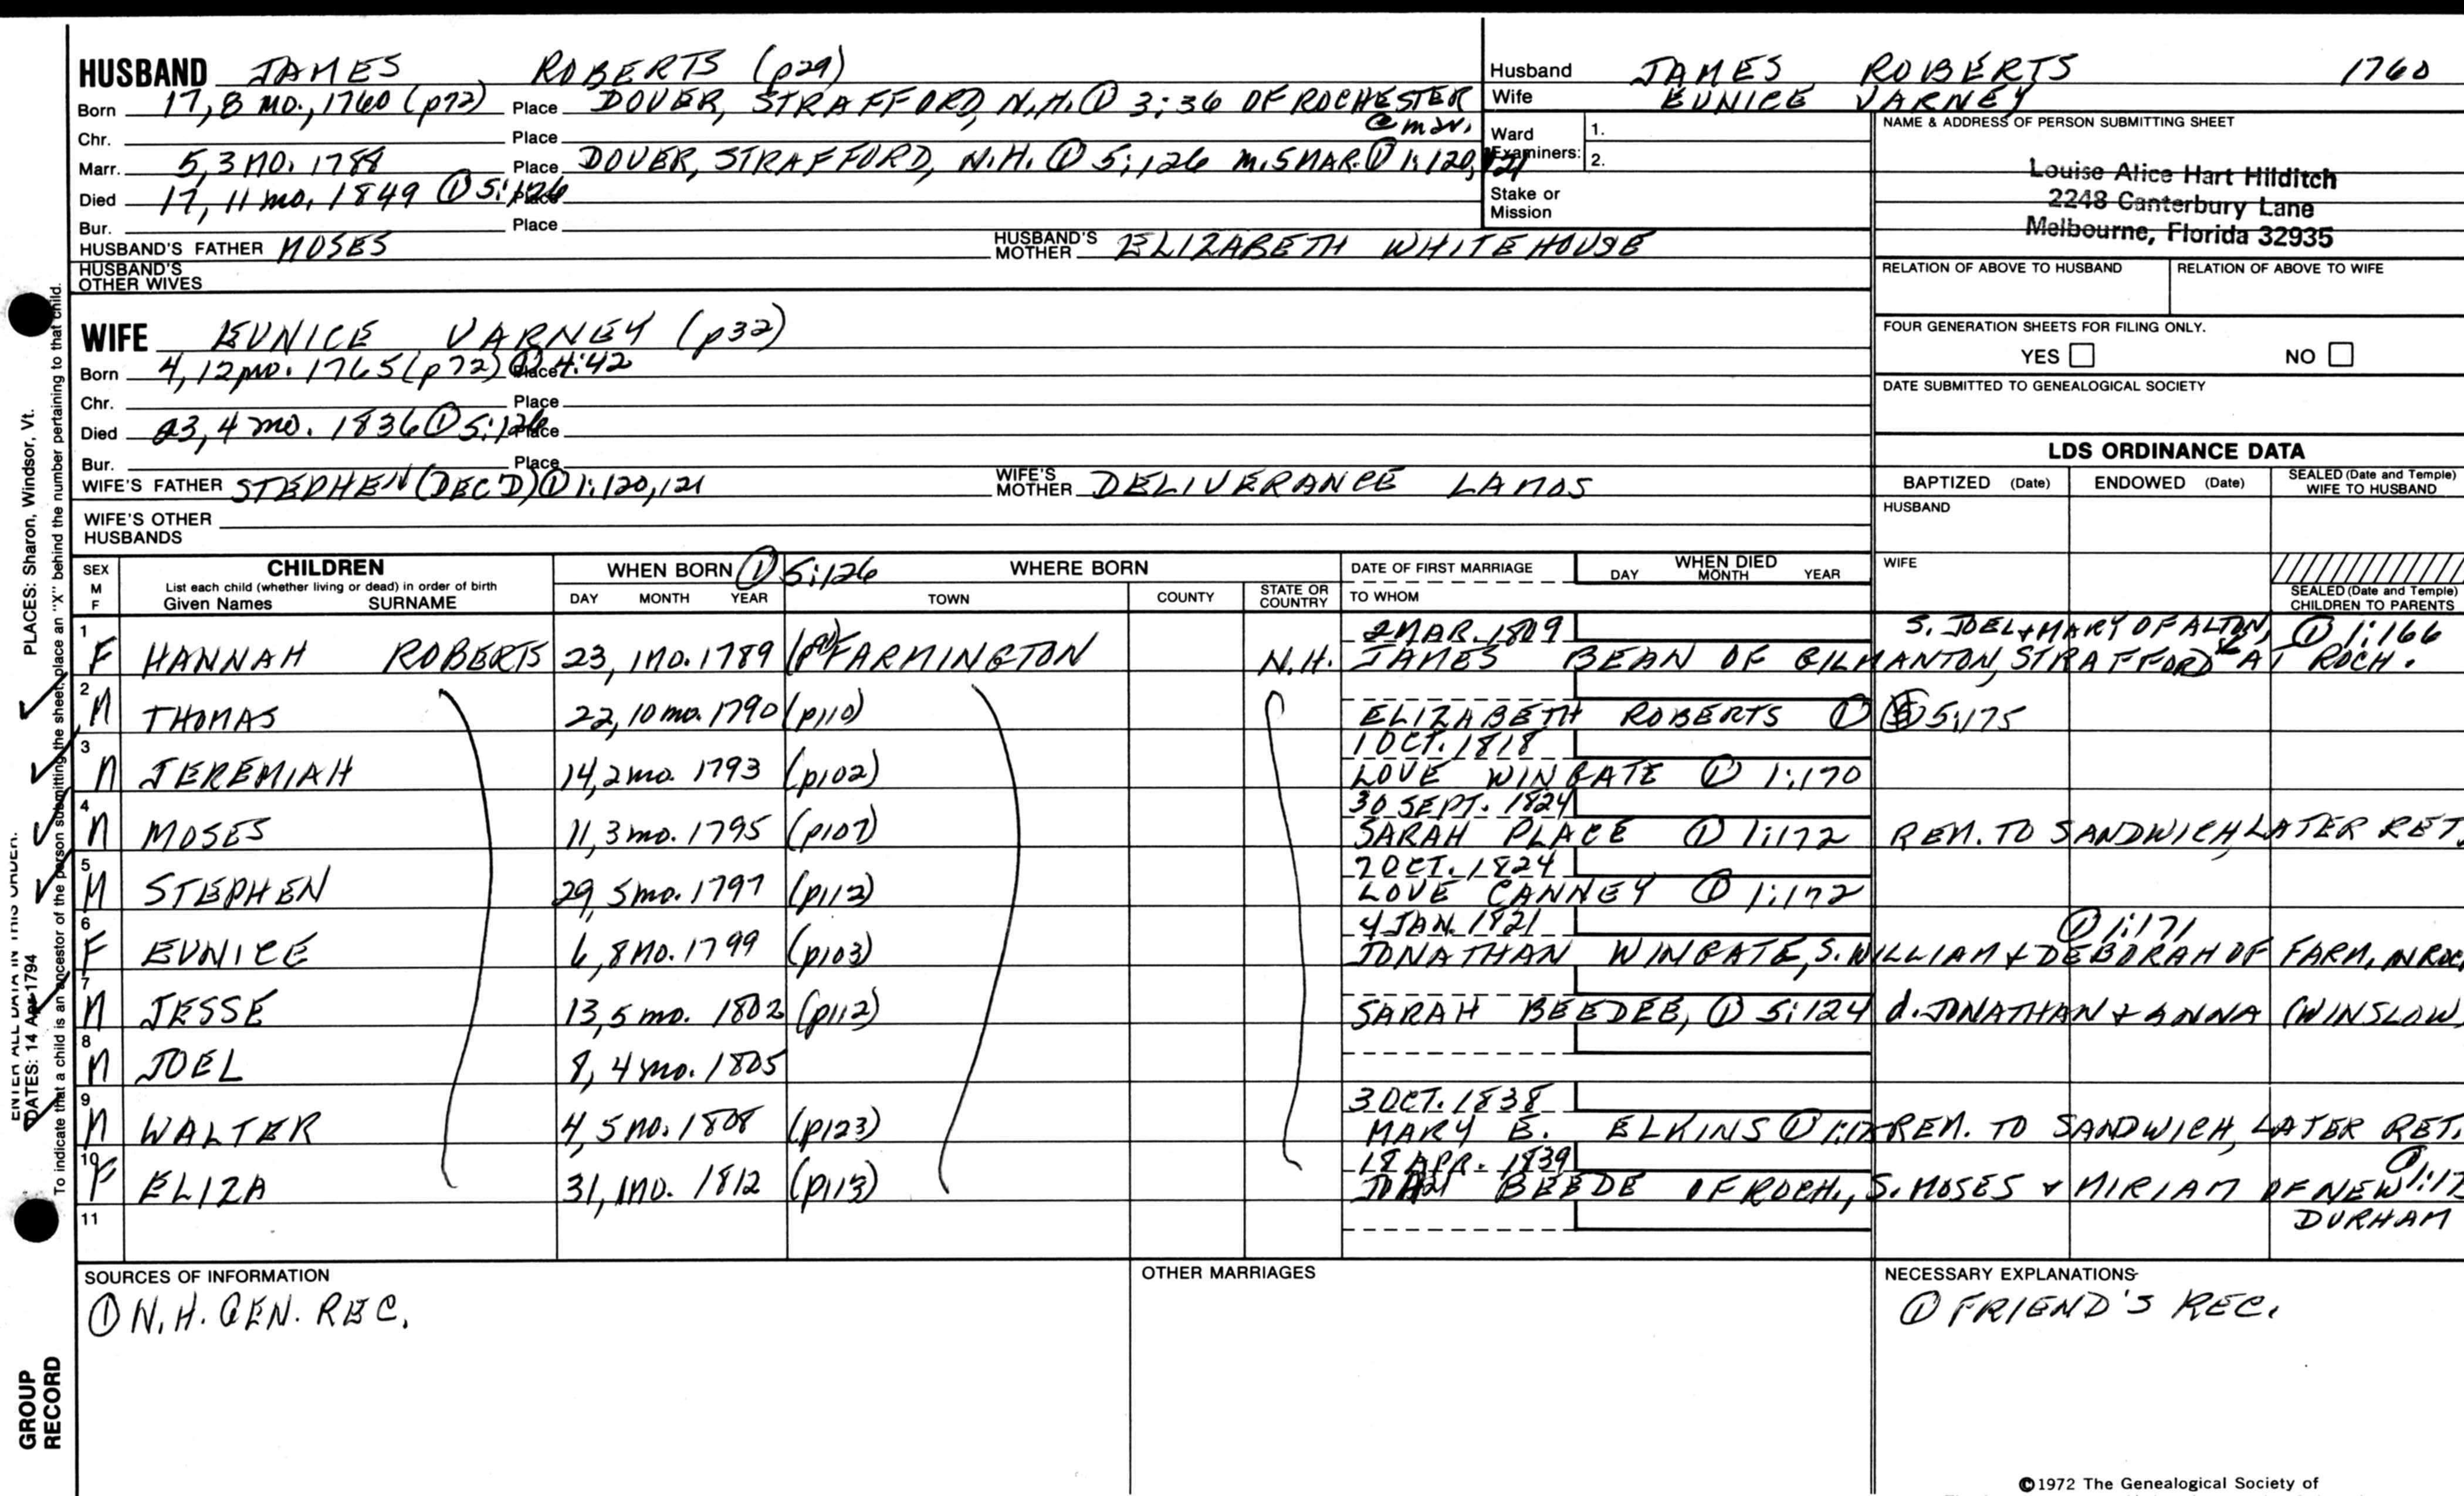 HUSBAND JAMES ROBERTS (p29)
Born 17, 8 mo., 1760 (p72) Place DOVER, STRAFFORD, N.H. ① 3:36 OF ROCHESTER
@ mar.
Chr. Place
Marr. 5, 3 MO. 1788 Place DOVER, STRAFFORD, N.H. ① 5:126 M. 5 MAR. ① 1:120, 121
Died 17, 11 mo. 1849 ① 5:126 Place
Bur. Place
HUSBAND'S FATHER MOSES HUSBAND'S MOTHER ELIZABETH WHITEHOUSE
HUSBAND'S OTHER WIVES
Husband JAMES ROBERTS 1760
Wife EUNICE VARNEY
Ward Examiners: 1.
2.
Stake or Mission
NAME & ADDRESS OF PERSON SUBMITTING SHEET
Louise Alice Hart Hilditch
2248 Canterbury Lane
Melbourne, Florida 32935
RELATION OF ABOVE TO HUSBAND RELATION OF ABOVE TO WIFE
FOUR GENERATION SHEETS FOR FILING ONLY.
YES NO
DATE SUBMITTED TO GENEALOGICAL SOCIETY
WIFE EUNICE VARNEY (p32)
Born 4, 12 mo. 1765 (p72) ① 4:42 Place
Chr. Place
Died 23, 4 mo. 1836 ① 5:126 Place
Bur. Place
WIFE'S FATHER STEPHEN (DEC'D) ① 1:120, 121 WIFE'S MOTHER DELIVERANCE LAMOS
WIFE'S OTHER HUSBANDS
LDS ORDINANCE DATA
BAPTIZED (Date) ENDOWED (Date) SEALED (Date and Temple) WIFE TO HUSBAND
HUSBAND
WIFE
SEALED (Date and Temple) CHILDREN TO PARENTS
SEX M F CHILDREN List each child (whether living or dead) in order of birth Given Names SURNAME
WHEN BORN ① 5:126 DAY MONTH YEAR
WHERE BORN TOWN COUNTY STATE OR COUNTRY
DATE OF FIRST MARRIAGE TO WHOM
WHEN DIED DAY MONTH YEAR
2 MAR. 1809 S. JOEL & MARY OF ALTON, ① 1:166
1 F HANNAH ROBERTS 23, 1 MO. 1789 FARMINGTON N.H. JAMES BEAN OF GILMANTON, STRAFFORD AT ROCH.
2 M THOMAS 22, 10 mo. 1790 (p110) ELIZABETH ROBERTS ① 5:175
1 OCT. 1818
3 M JEREMIAH 14, 2 mo. 1793 (p102) LOVE WINGATE ① 1:170
30 SEPT. 1824
4 M MOSES 11, 3 mo. 1795 (p107) SARAH PLACE ① 1:172 REM. TO SANDWICH, LATER RET.
7 OCT. 1824
5 M STEPHEN 29, 5 mo. 1797 (p112) LOVE CANNEY ① 1:172
4 JAN. 1821 ① 1:171
6 F EUNICE 6, 8 MO. 1799 (p103) JONATHAN WINGATE, S. WILLIAM & DEBORAH OF FARM, IN ROC
7 M JESSE 13, 5 mo. 1802 (p112) SARAH BEEDEE, ① 5:124 d. JONATHAN & ANNA (WINSLOW
8 M JOEL 8, 4 mo. 1805
3 OCT. 1838
9 M WALTER 4, 5 MO. 1808 (p123) MARY E. ELKINS ① REM. TO SANDWICH, LATER RET.
18 APR. 1839
10 F ELIZA 31, 1 MO. 1812 (p113) BEEDE OF ROCH., S. MOSES & MIRIAM OF NEW DURHAM ①
11
SOURCES OF INFORMATION
① N.H. GEN. REC.
OTHER MARRIAGES
NECESSARY EXPLANATIONS
① FRIEND'S REC.
©1972 The Genealogical Society of
ENTER ALL DATA IN THIS ORDER.
DATES: 14 Apr 1794
PLACES: Sharon, Windsor, Vt.
To indicate that a child is an ancestor of the person submitting the sheet, place an "X" behind the number pertaining to that child.
GROUP RECORD